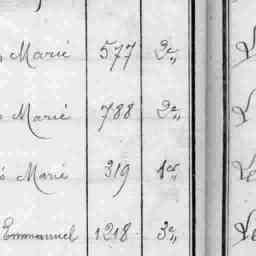 Marié 577 2e
Marié 788 2e
Marié 319 1er
Emmanuel 1218 3e